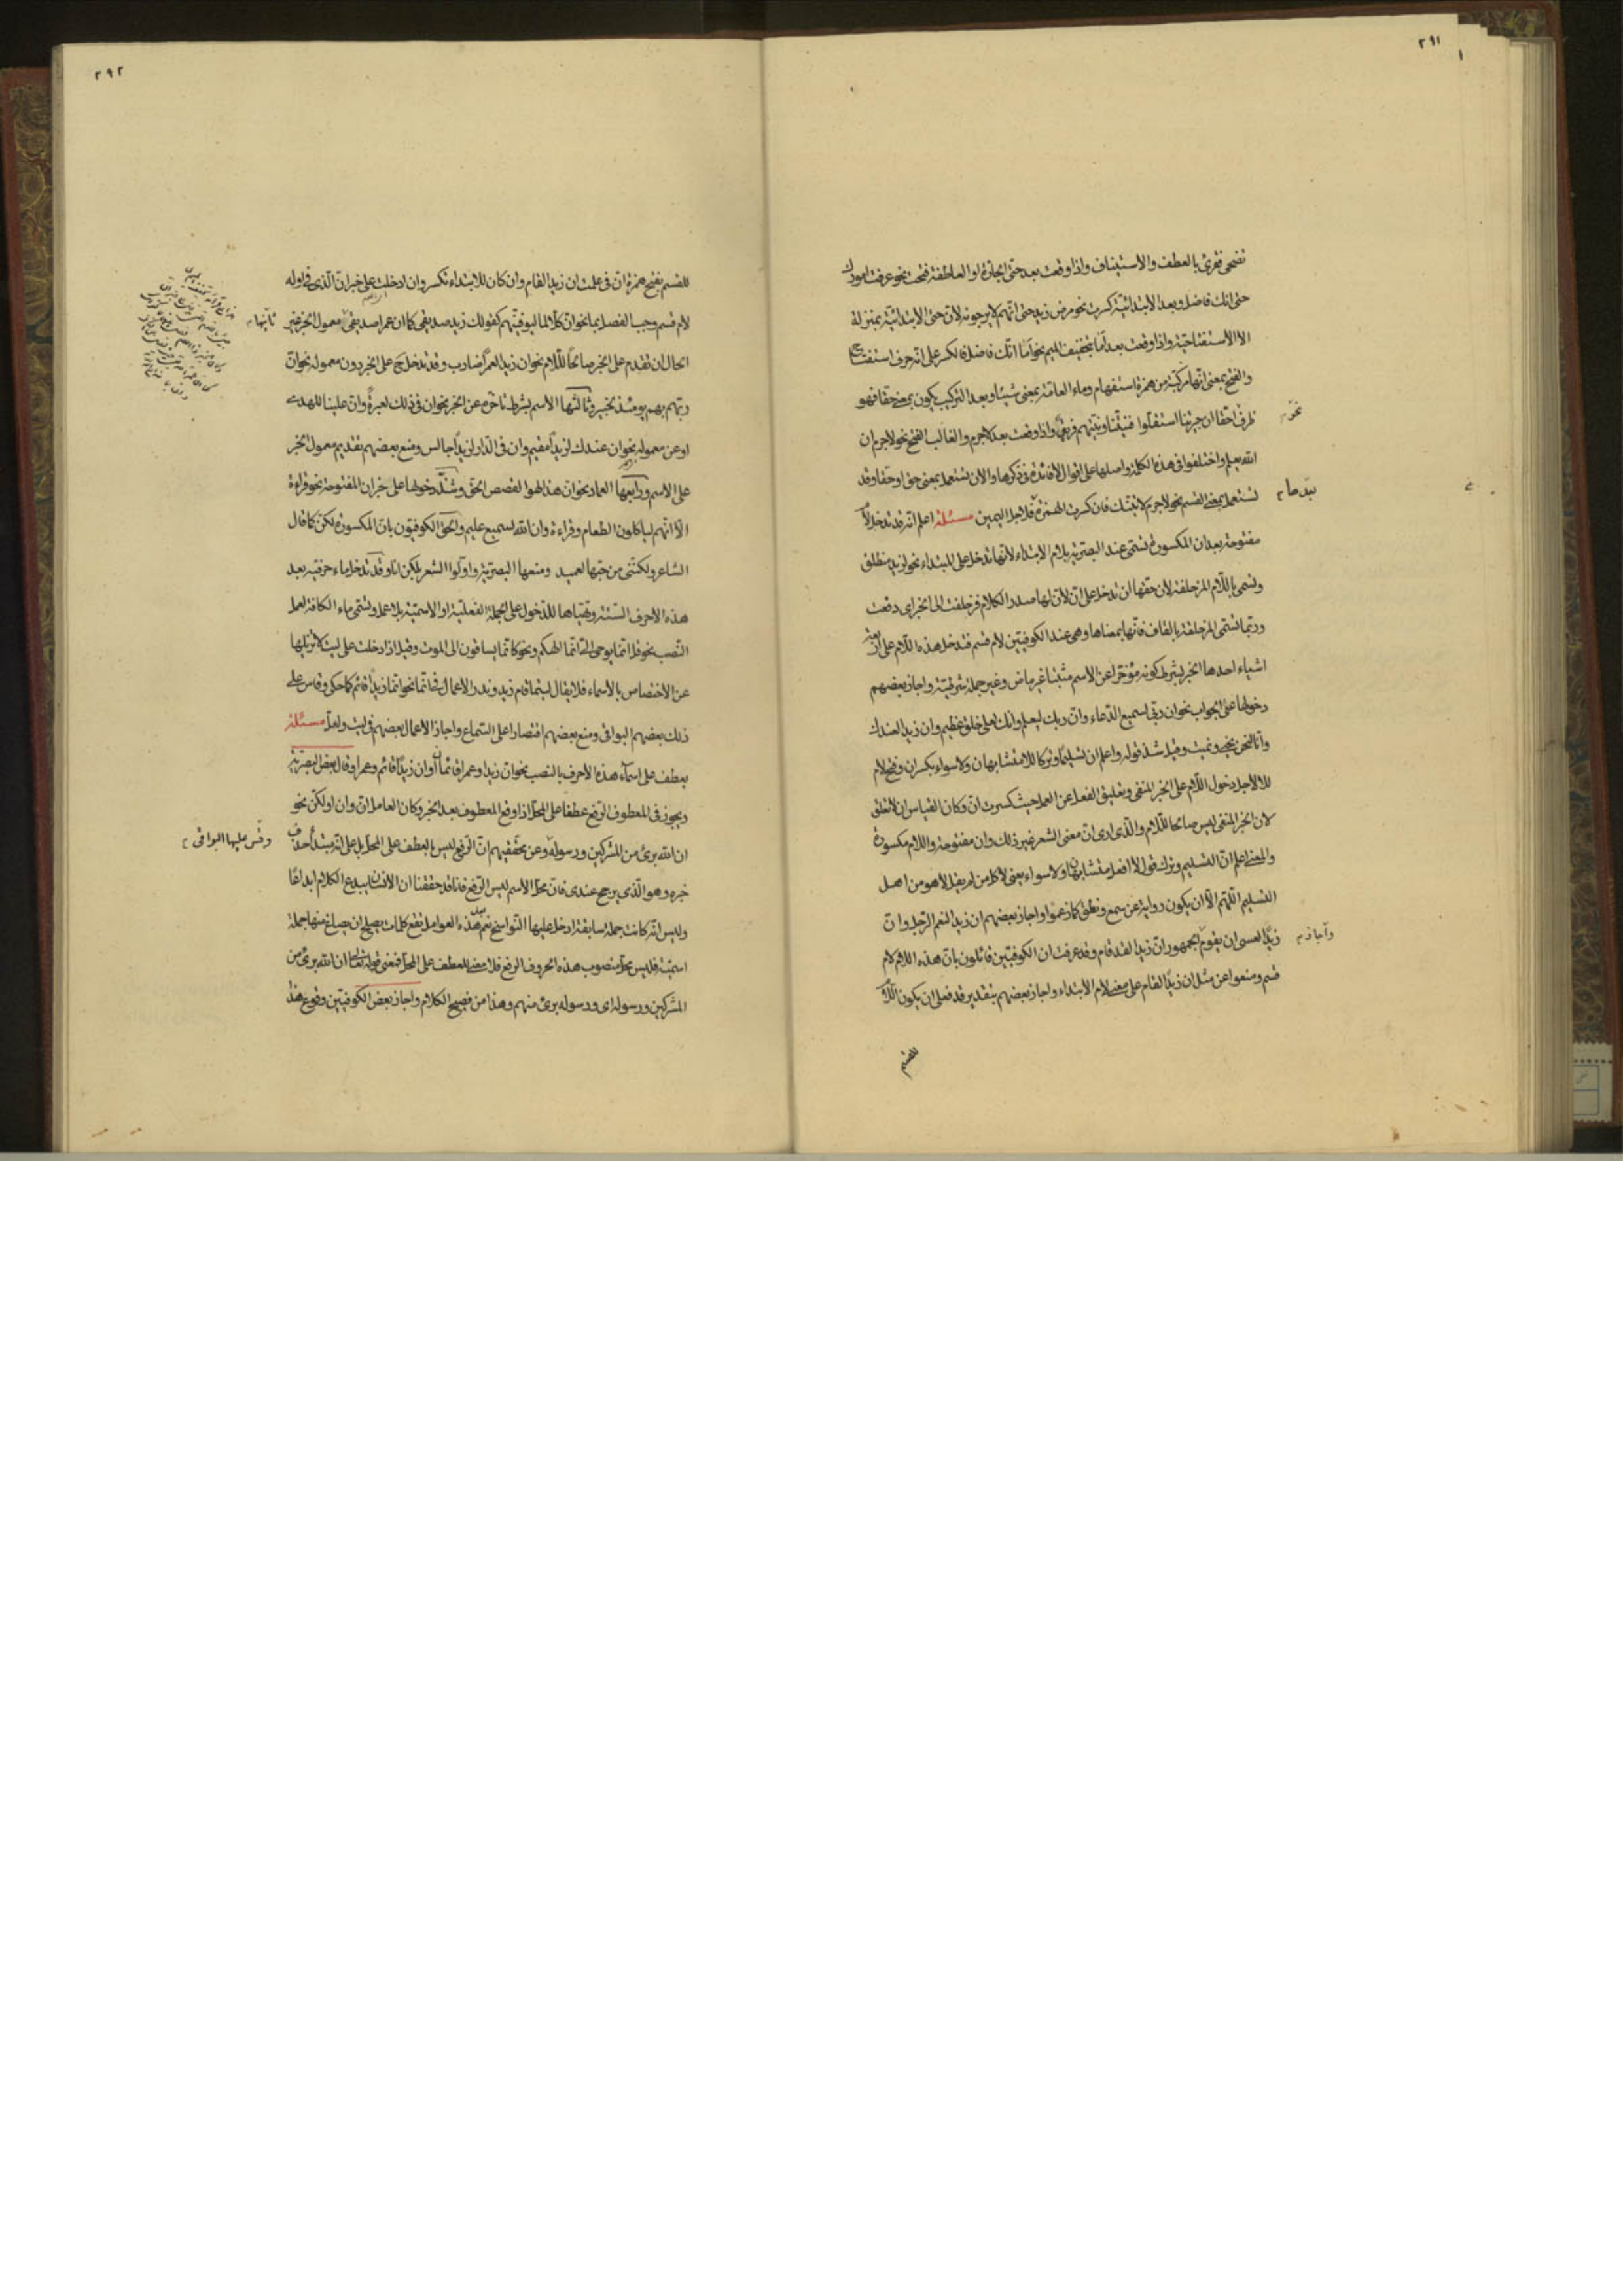 ٢٩١
تضحى فقرئ بالعطف والاستيناف واذا وقعت بعد حتى الجارة او العاطفة فتحت نحو عرفت امورك
حتى انك فاضل وبعد الابتدائية كسرت نحو مرض زيد حتى انهم لا يرجونه لان حتى الابتدائية بمنزلة
الا الاستفتاحية واذا وقعت بعد اما بتخفيف الميم نحو اما انك فاضل فالكسر على انه حرف استفتاح
والفتح بمعنى انها مركبة من همزة استفهام وماء العامة بمعنى شيئا وبعد التركيب يكون بمعنى حقا فهو
ظرف احقا ان جيرتنا استقلوا فنيتنا ونيتهم فريق واذا وقعت بعد لا جرم والغالب الفتح نحو لا جرم ان
الله يعلم واختلفوا فى هذه الكلمة واصلها على اقوال لا فائدة فى ذكرها والان تستعمل بمعنى حق او حقا وقد
تستعمل بمعنى القسم نحو لا جرم لاتينك فان كسرت الهمزة فلاجل اليمين مسئلة اعلم انه قد تدخل لام
مفتوحة بعد ان المكسورة تسمى عند البصرية بلام الابتداء لانها تدخل على المبتداء نحو لزيد منطلق
وتسمى باللام المزحلفة لان حقها ان تدخل على ان لان لها صدر الكلام فزحلفت الى الخبر اى دفعت
وربما تسمى المزحلقة بالقاف فانها بمعناها وهى عند الكوفيين لام قسم فتدخل هذه اللام على اربعة
اشياء احدها الخبر بشرط كونه مؤخرا عن الاسم مثبتا غير ماض وغير جملة شرطية واجاز بعضهم
دخولها على الجواب نحو ان ربى لسميع الدعاء وان ربك ليعلم وانك لعلى خلق عظيم وان زيدا لعندك
وانا لنحن نحيى ونميت وقيل شذ قوله واعلم ان تسليما وتركا للا متشابهان ولا سواء بكسر ان وفتح لام
للا لاجل دخول اللام على الخبر المنفى وتعليق الفعل عن العمل حيث كسرت ان وكان القياس ان لا تعلق
لان الخبر المنفى ليس صالحا للام والذى ارى ان معنى الشعر غير ذلك وان مفتوحة واللام مكسورة
والمعنى اعلم ان التسليم وترك قول لا افعل متشابهان ولا سواء يعنى لا كل من لم يقل لا هو من اهل
التسليم اللهم الا ان يكون رواية عن سمع ونطق كما زعموا واجاز بعضهم ان زيدا لنعم الرجل وان
زيدا لعسى ان يقوم الجمهور ان زيدا لقد قام وقد عرفت ان الكوفيين قائلون بان هذه اللام لام
قسم ومنعوا عن مثل ان زيدا لقام على معنى لام الابتداء واجاز بعضهم بتقدير قد فعلى ان يكون اللام
للقسم
نحو
بعدها
واجاز
٢٩٢
للقسم بفتح همزة ان فى علمت ان زيدا لقام وان كان للابتداء تكسر وان ادخلت على خبر ان الذى فى اوله
لام قسم وجب الفصل بما نحو ان كلا لما ليوفينهم كقولك زيد صديقى كما ان عمرا صديقى معمول الخبر غير
الحال ان تقدم على الخبر صالحا للام نحو ان زيدا لعمرا ضارب وقد تدخل ح على الخبر دون معموله نحو ان
ربهم بهم يومئذ لخبير وثالثها الاسم بشرط تاخره عن الخبر نحو ان فى ذلك لعبرة وان علينا للهدى
او عن معموله نحو ان عندك لزيدا مقيم وان فى الدار لزيدا جالس ومنع بعضهم تقديم معمول الخبر
على الاسم ورابعها العماد نحو ان هذا لهو القصص الحق وشذ دخولها على خبر ان المفتوحة نحو قراءة
الا انهم لياكلون الطعام وقراءة وان الله لسميع عليم والحق الكوفيون بان المكسورة لكن كما قال
الشاعر ولكننى من حبها لعميد ومنعها البصرية واولوا الشعر بلكن انا وقد تدخل ماء حرفية بعد
هذه الاحرف الستة وتهيأها للدخول على الجملة الفعلية او الاسمية بلا عمل وتسمى ماء الكافة لعمل
النصب نحو قل انما يوحى الى انما الهكم ونحو كانما يساقون الى الموت وقيل اذا دخلت على ليت لا تزيلها
عن الاختصاص بالاسماء فلا يقال ليتما قام زيد وندر الاعمال فى انما نحو انما زيدا قائم كما حكى وقاس على
ذلك بعضهم البواقى ومنع بعضهم اقتصارا على السماع واجاز الاعمال بعضهم فى ليت ولعل مسئلة
يعطف على اسماء هذه الاحرف بالنصب نحو ان زيدا وعمرا قائمان او ان زيدا قائم وعمرا وقال بعض البصرية
ويجوز فى المعطوف الرفع عطفا على المحل اذا وقع المعطوف بعد الخبر وكان العامل ان وان او لكن نحو
ان الله برئ من المشركين ورسوله وعن محققيهم ان الرفع ليس بالعطف على المحل بل على انه مبتدأ حذف
خبره وهو الذى يرجح عندى فان محل الاسم ليس الرفع فانا قد حققنا ان الانسان يبدع الكلام ابداعا
وليس انه كانت جملة سابقة ادخل عليها النواسخ نعم هذه العوامل تقع كلمات يصلح ان يصاغ منها جملة
اسمية فليس محل منصوب هذه الحروف الرفع فلا معنى للعطف على المحل فمعنى قوله تعالى ان الله برئ من
المشركين ورسوله اى ورسوله برئ منهم وهذا من فصيح الكلام واجاز بعض الكوفيين وقوع هذا
ثانيها
وقس عليها البواقى